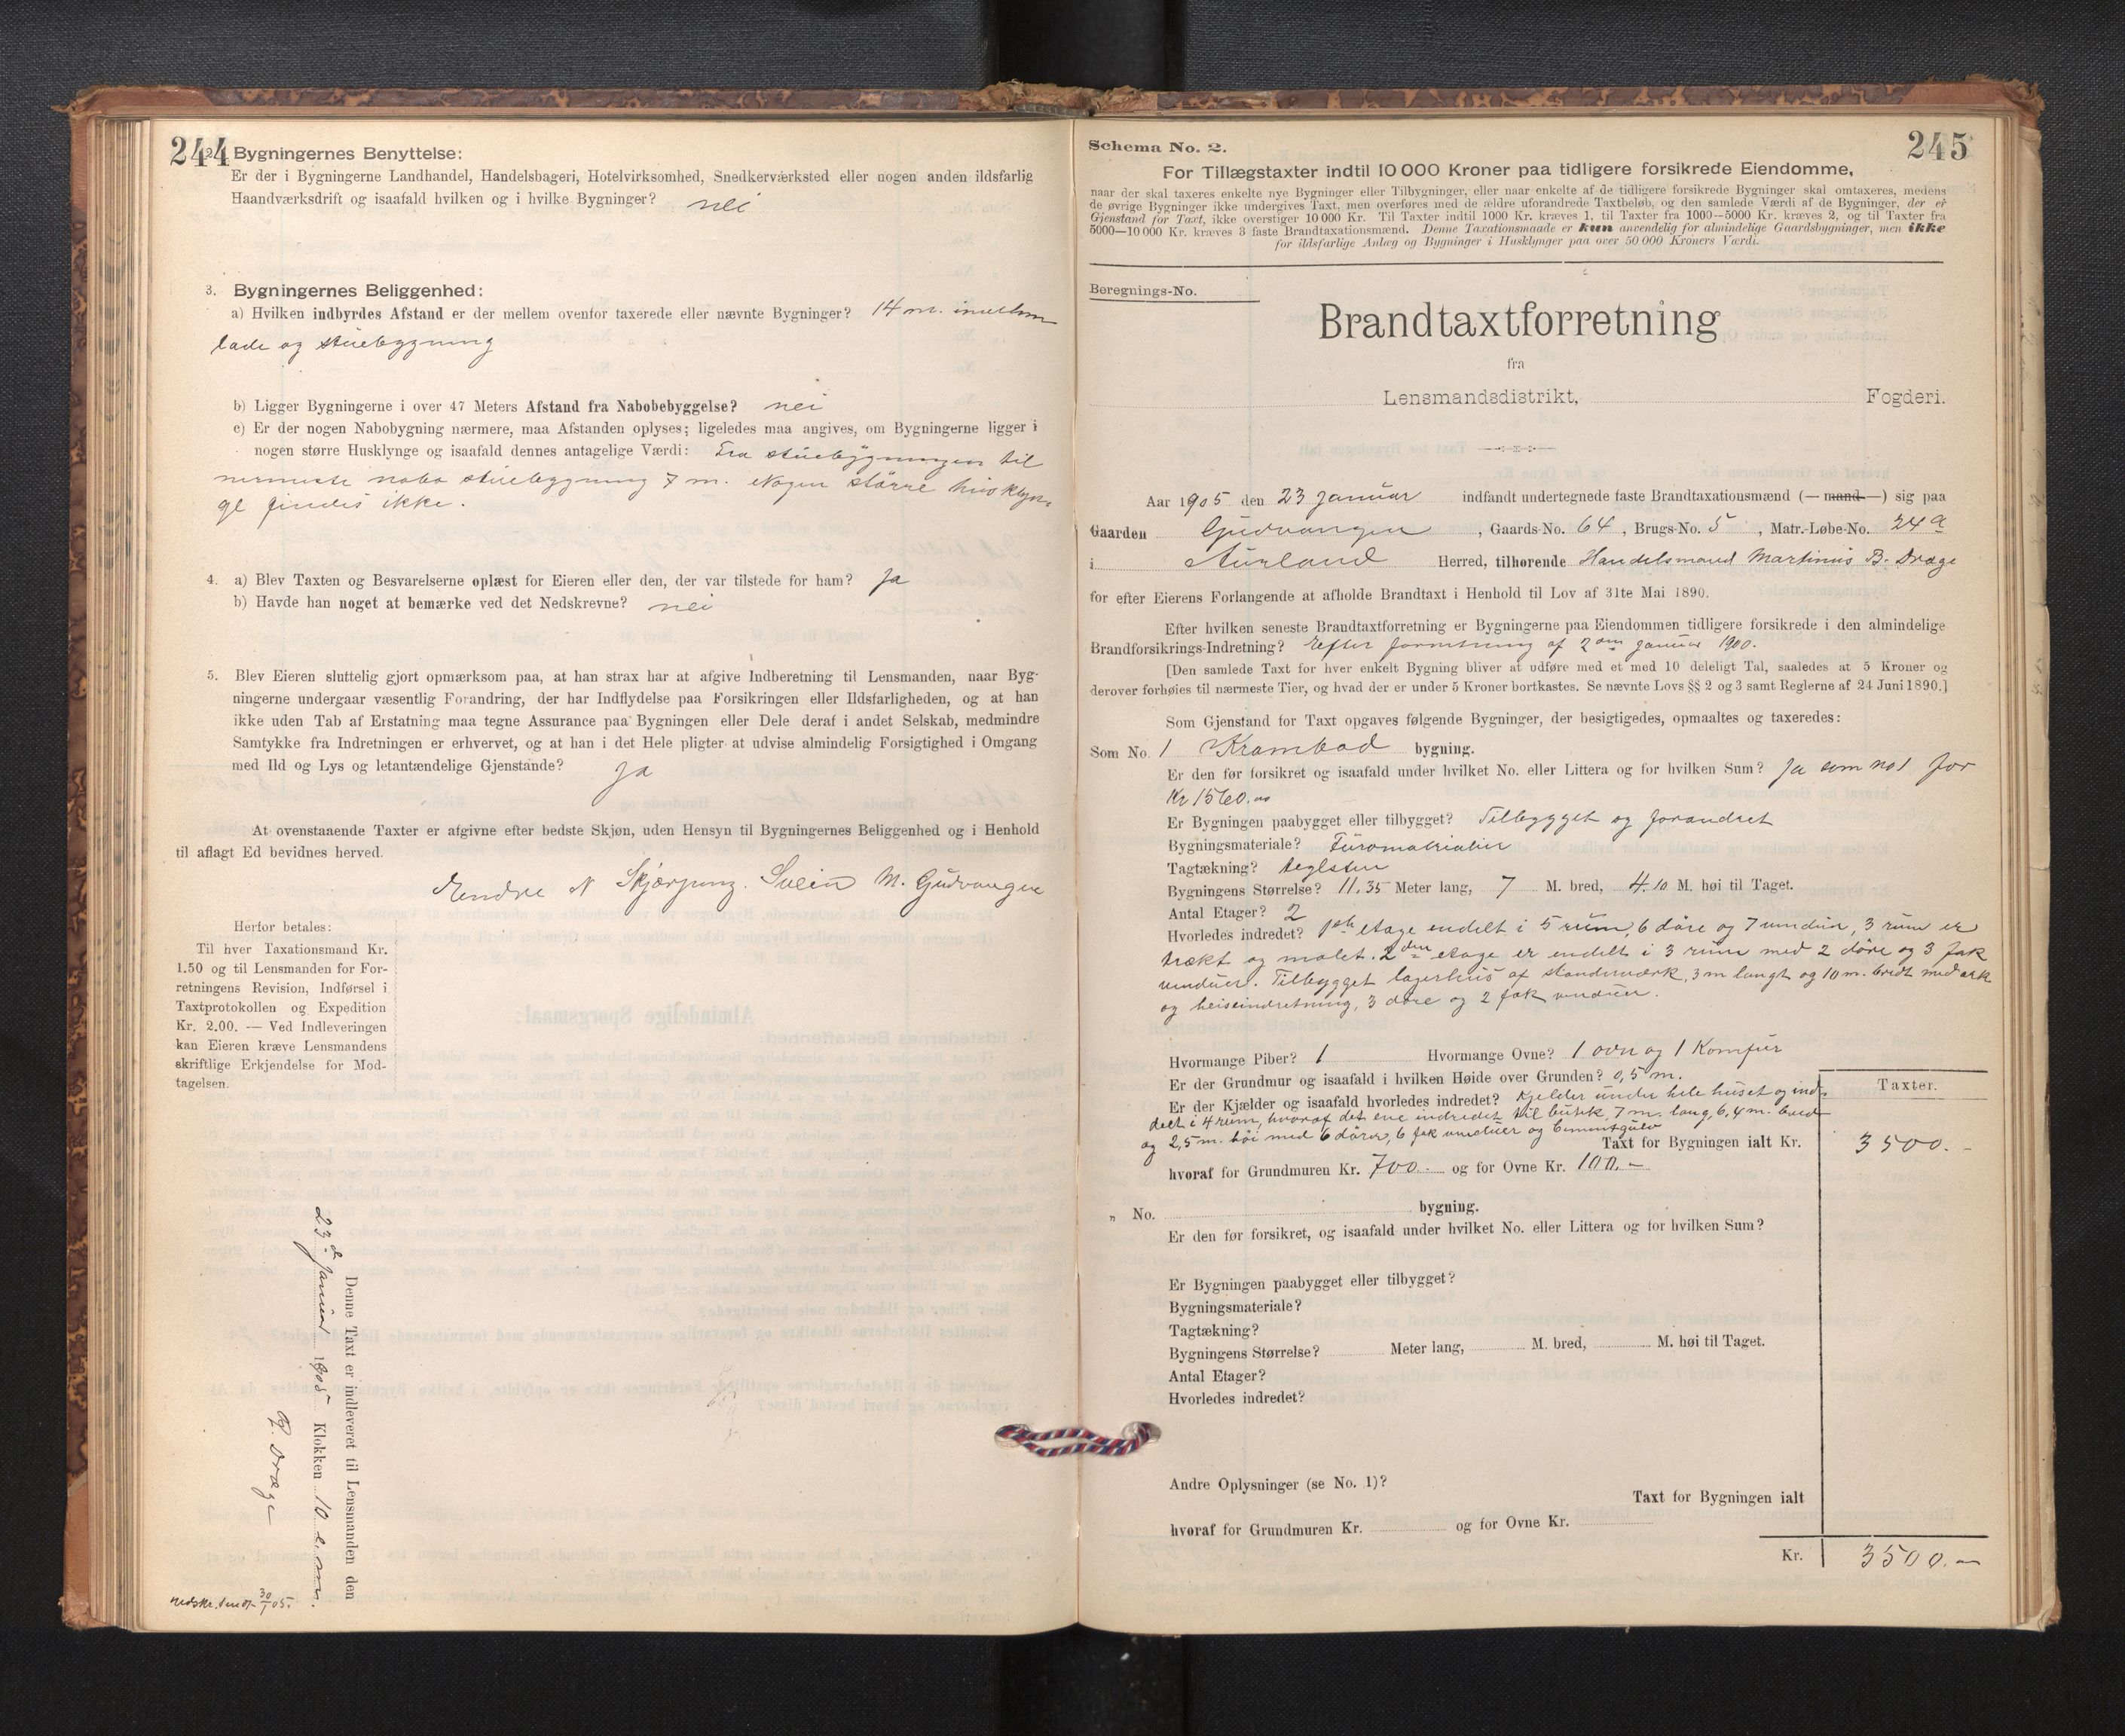 244
2. Bygningernes Benyttelse:
Er der i Bygningerne Landhandel, Handelsbageri, Hotelvirksomhed, Snedkerværksted eller nogen anden ildsfarlig
Haandværksdrift og isaafald hvilken og i hvilke Bygninger? nei
3. Bygningernes Beliggenhed:
a) Hvilken indbyrdes Afstand er der mellem ovenfor taxerede eller nævnte Bygninger? 14 m. imellem
lade og stuebygning
b) Ligger Bygningerne i over 47 Meters Afstand fra Nabobebyggelse? nei
c) Er der nogen Nabobygning nærmere, maa Afstanden oplyses; ligeledes maa angives, om Bygningerne ligger i
nogen større Husklynge og isaafald dennes antagelige Værdi: Fra stuebygningen til
nermeste nabo stuebygning 7 m. Nogen større husklyn-
ge findes ikke.
4. a) Blev Taxten og Besvarelserne oplæst for Eieren eller den, der var tilstede for ham? Ja
b) Havde han noget at bemærke ved det Nedskrevne? nei
5. Blev Eieren sluttelig gjort opmærksom paa, at han strax har at afgive Indberetning til Lensmanden, naar Byg-
ningerne undergaar væsentlig Forandring, der har Indflydelse paa Forsikringen eller Ildsfarligheden, og at han
ikke uden Tab af Erstatning maa tegne Assurance paa Bygningen eller Dele deraf i andet Selskab, medmindre
Samtykke fra Indretningen er erhvervet, og at han i det Hele pligter at udvise almindelig Forsigtighed i Omgang
med Ild og Lys og letantændelige Gjenstande? Ja
At ovenstaaende Taxter er afgivne efter bedste Skjøn, uden Hensyn til Bygningernes Beliggenhed og i Henhold
til aflagt Ed bevidnes herved.
Endre N Skjærping. Svein M. Gudvangen
Herfor betales:
Til hver Taxationsmand Kr.
1.50 og til Lensmanden for For-
retningens Revision, Indførsel i
Taxtprotokollen og Expedition
Kr. 2.00. — Ved Indleveringen
kan Eieren kræve Lensmandens
skriftlige Erkjendelse for Mod-
tagelsen.
Denne Taxt er indleveret til Lensmanden den
23de Januar 1905 Klokken 10 e.m.
B. Dræge
30/1 05.
245
Schema No. 2.
For Tillægstaxter indtil 10 000 Kroner paa tidligere forsikrede Eiendomme,
naar der skal taxeres enkelte nye Bygninger eller Tilbygninger, eller naar enkelte af de tidligere forsikrede Bygninger skal omtaxeres, medens
de øvrige Bygninger ikke undergives Taxt, men overføres med de ældre uforandrede Taxtbeløb, og den samlede Værdi af de Bygninger, der er
Gjenstand for Taxt, ikke overstiger 10 000 Kr. Til Taxter indtil 1000 Kr. kræves 1, til Taxter fra 1000—5000 Kr. kræves 2, og til Taxter fra
5000—10 000 Kr. kræves 3 faste Brandtaxationsmænd. Denne Taxationsmaade er kun anvendelig for almindelige Gaardsbygninger, men ikke
for ildsfarlige Anlæg og Bygninger i Husklynger paa over 50 000 Kroners Værdi.
Beregnings-No.
Brandtaxtforretning
fra
Lensmandsdistrikt, Fogderi.
Aar 1905 den 23 Januar indfandt undertegnede faste Brandtaxationsmænd (— mand —) sig paa
Gaarden Gudvangen, Gaards-No. 64, Brugs-No. 5, Matr.-Løbe-No. 24a
i Aurland Herred, tilhørende Handelsmand Martinus B. Dræge
for efter Eierens Forlangende at afholde Brandtaxt i Henhold til Lov af 31te Mai 1890.
Efter hvilken seneste Brandtaxtforretning er Bygningerne paa Eiendommen tidligere forsikrede i den almindelige
Brandforsikrings-Indretning? Efter forretning af 2den Januar 1900.
[Den samlede Taxt for hver enkelt Bygning bliver at udføre med et med 10 deleligt Tal, saaledes at 5 Kroner og
derover forhøies til nærmeste Tier, og hvad der er under 5 Kroner bortkastes. Se nævnte Lovs §§ 2 og 3 samt Reglerne af 24 Juni 1890.]
Som Gjenstand for Taxt opgaves følgende Bygninger, der besigtigedes, opmaaltes og taxeredes:
Som No. 1 Krambod bygning.
Er den før forsikret og isaafald under hvilket No. eller Littera og for hvilken Sum? Ja som no 1 for
Kr 1560.00
Er Bygningen paabygget eller tilbygget? Tilbygget og forandret
Bygningsmateriale? Furumaterialier
Tagtækning? teglsten
Bygningens Størrelse? 11.35 Meter lang, 7 M. bred, 4.10 M. høi til Taget.
Antal Etager? 2
Hvorledes indredet? 1ste etage endelt i 5 rum, 6 døre og 7 vinduer, 3 rum er
trækt og malet. 2den etage er endelt i 3 rum med 2 døre og 3 fak
vinduer. Tilbygget lagerhus af standerværk, 3 m langt og 10 m. bredt med ark
og heiseindretning, 3 døre og 2 fak vinduer.
Hvormange Piber? 1 Hvormange Ovne? 1 ovn og 1 Komfur
Er der Grundmur og isaafald i hvilken Høide over Grunden? 0,5 m.
Er der Kjælder og isaafald hvorledes indredet? Kjelder under hele huset og ind-
delt i 4 rum, hvoraf det ene indredet til butik, 7 m. lang, 6,4 m. bred
og 2,5 m. høi med 6 døre, 6 fak vinduer og Cementgulv
Taxter.
Taxt for Bygningen ialt Kr. 3500.-
hvoraf for Grundmuren Kr. 700.- og for Ovne Kr. 100.-
„ No. bygning.
Er den før forsikret, og isaafald under hvilket No. eller Littera og for hvilken Sum?
Er Bygningen paabygget eller tilbygget?
Bygningsmateriale?
Tagtækning?
Bygningens Størrelse? Meter lang, M. bred, M. høi til Taget.
Antal Etager?
Hvorledes indredet?
Andre Oplysninger (se No. 1)?
Taxt for Bygningen ialt
hvoraf for Grundmuren Kr. og for Ovne Kr.
Kr. 3500.-